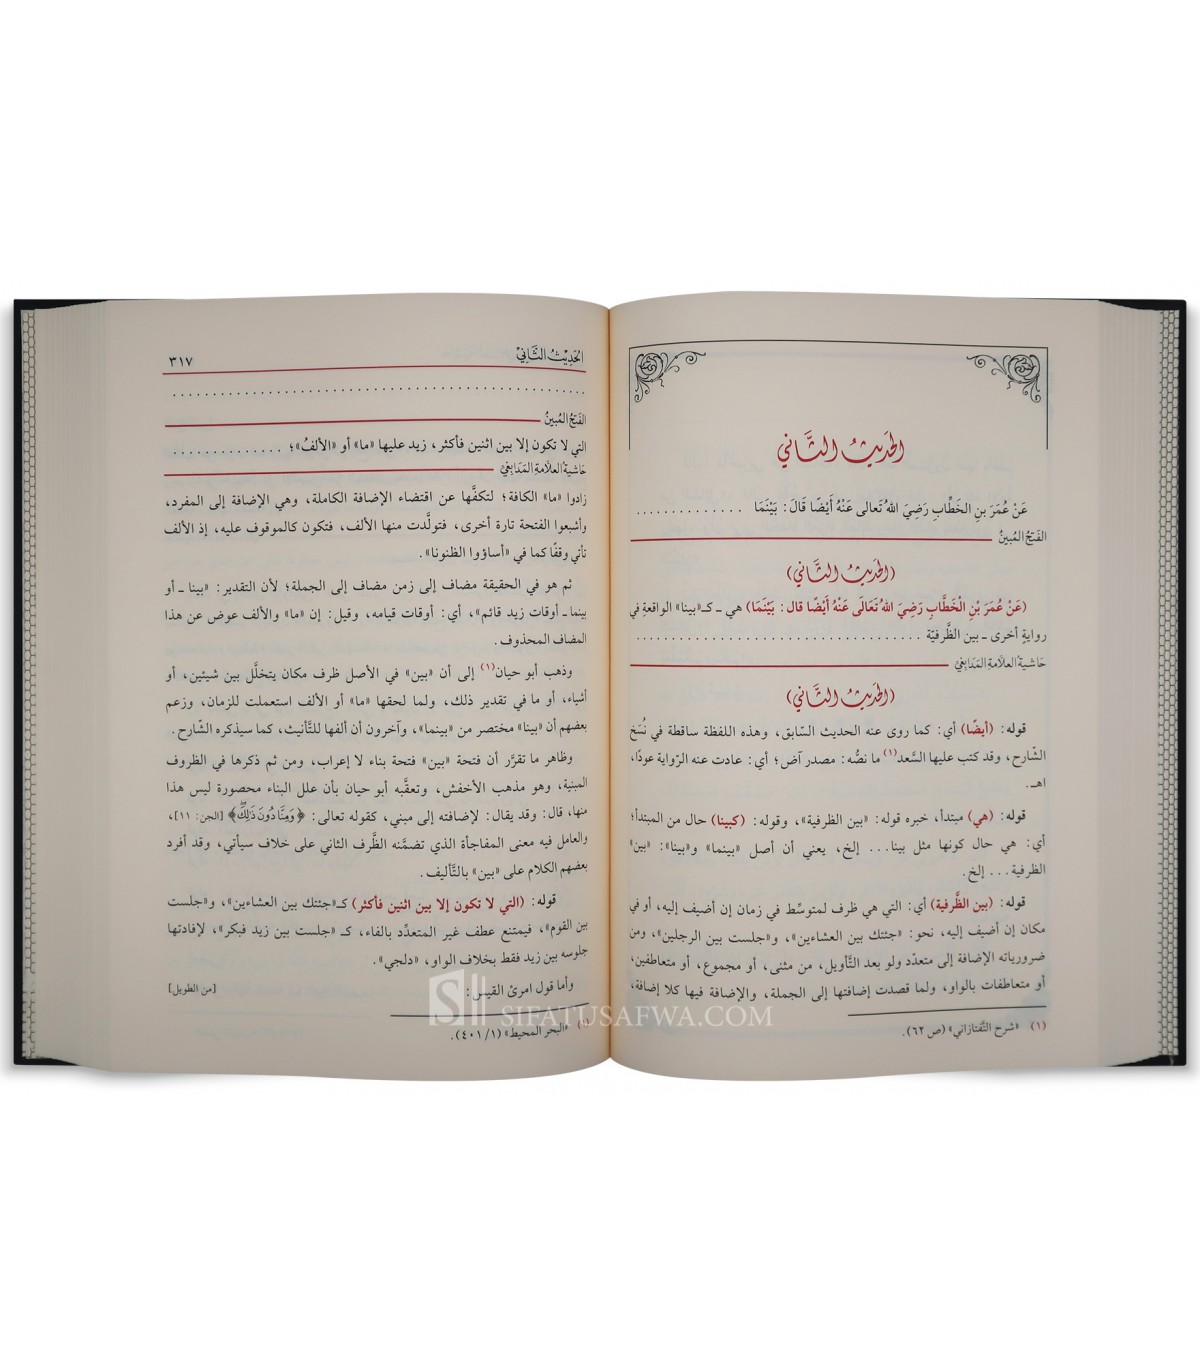 الحَدِيْثُ الثَّانِي
عَنْ عُمَرَ بنِ الخَطَّابِ رَضِيَ اللهُ تَعالى عَنْهُ أَيْضًا قَالَ: بَيْنَمَا . . . . . . . . . . . . . .
الفَتحُ المُبينُ
(الحَدِيْثُ الثَّانِي)
(عَنْ عُمَرَ بْنِ الْخَطَّابِ رَضِيَ اللهُ تَعَالَى عَنْهُ أَيْضًا قال: بَيْنَمَا) هي ـ كـ«بينا» الواقعةِ في
روايةٍ أخرى ـ بين الظَّرفيّة . . . . . . . . . . . . . . . . . . . . . . . . . . . . . . . . . . .
حَاشيةُ العلّامةِ المَدَابِغيِّ
(الحَدِيْثُ الثَّانِي)
قوله: (أيضًا) أي: كما روى عنه الحديث السّابق، وهذه اللفظة ساقطة في نُسَخ
الشّارح، وقد كتب عليها السَّعد(١) ما نصُّه: مصدر آض؛ أي: عادت عنه الرّواية عودًا،
اهـ.
قوله: (هي) مبتدأ، خبره قوله: «بين الظرفية»، وقوله: (كبينا) حال من المبتدأ؛
أي: هي حال كونها مثل بينا... إلخ، يعني أن أصل «بينما» و«بينا»: «بين»
الظرفية... إلخ.
قوله: (بين الظَّرفية) أي: التي هي ظرف لمتوسِّط في زمان إن أضيف إليه، أو في
مكان إن أضيف إليه، نحو: «جئتك بين العشاءين»، و«جلست بين الرجلين»، ومن
ضرورياته الإضافة إلى متعدّد ولو بعد التَّأويل، من مثنى، أو مجموع، أو متعاطفين،
أو متعاطفات بالواو، ولما قصدت إضافتها إلى الجملة، والإضافة فيها كلا إضافة،
(١) «شرح التفتازاني» (ص ٦٢).
الحَدِيْثُ الثَّانِي ٣١٧
. . . . . . . . . . . . . . . . . . . . . . . . . . . . . . . . . . . . . . . . . . . . . . . . .
الفَتحُ المُبينُ
التي لا تكون إلا بين اثنين فأكثر، زيد عليها «ما» أو «الألفُ»؛ . . . . . . . . . . . . . .
حَاشيةُ العلّامةِ المَدَابِغيِّ
زادوا «ما» الكافة؛ لتكفَّها عن اقتضاء الإضافة الكاملة، وهي الإضافة إلى المفرد،
وأشبعوا الفتحة تارة أخرى، فتولَّدت منها الألف، فتكون كالموقوف عليه، إذ الألف
تأتي وقفًا كما في «أساؤوا الظنونا».
ثم هو في الحقيقة مضاف إلى زمن مضاف إلى الجملة؛ لأن التقدير: «بينا ـ أو
بينما ـ أوقات زيد قائم»، أي: أوقات قيامه، وقيل: إن «ما» والألف عوض عن هذا
المضاف المحذوف.
وذهب أبو حيان(١) إلى أن «بين» في الأصل ظرف مكان يتخلَّل بين شيئين، أو
أشياء، أو ما في تقدير ذلك، ولما لحقها «ما» أو الألف استعملت للزمان، وزعم
بعضهم أن «بينا» مختصر من «بينما»، وآخرون أن ألفها للتَّأنيث، كما سيذكره الشّارح.
وظاهر ما تقرَّر أن فتحة «بين» فتحة بناء لا إعراب، ومن ثم ذكرها في الظروف
المبنية، وهو مذهب الأخفش، وتعقَّبه أبو حيان بأن علل البناء محصورة ليس هذا
منها، قال: وقد يقال: لإضافته إلى مبني، كقوله تعالى: ﴿وَمِنَّا دُونَ ذَٰلِكَ﴾ [الجن: ١١]،
والعامل فيه معنى المفاجأة الذي تضمَّنه الظَّرف الثاني على خلاف سيأتي، وقد أفرد
بعضهم الكلام على «بين» بالتَّأليف.
قوله: (التي لا تكون إلا بين اثنين فأكثر) كـ«جئتك بين العشاءين»، و«جلست
بين القوم»، فيمتنع عطف غير المتعدِّد بالفاء، كـ «جلست بين زيد فبكر»، لإفادتها
جلوسه بين زيد فقط بخلاف الواو، «دلجي».
وأما قول امرئ القيس: [من الطويل]
(١) «البحر المحيط» (١/ ٤٠١).
SIFATUSAFWA.COM